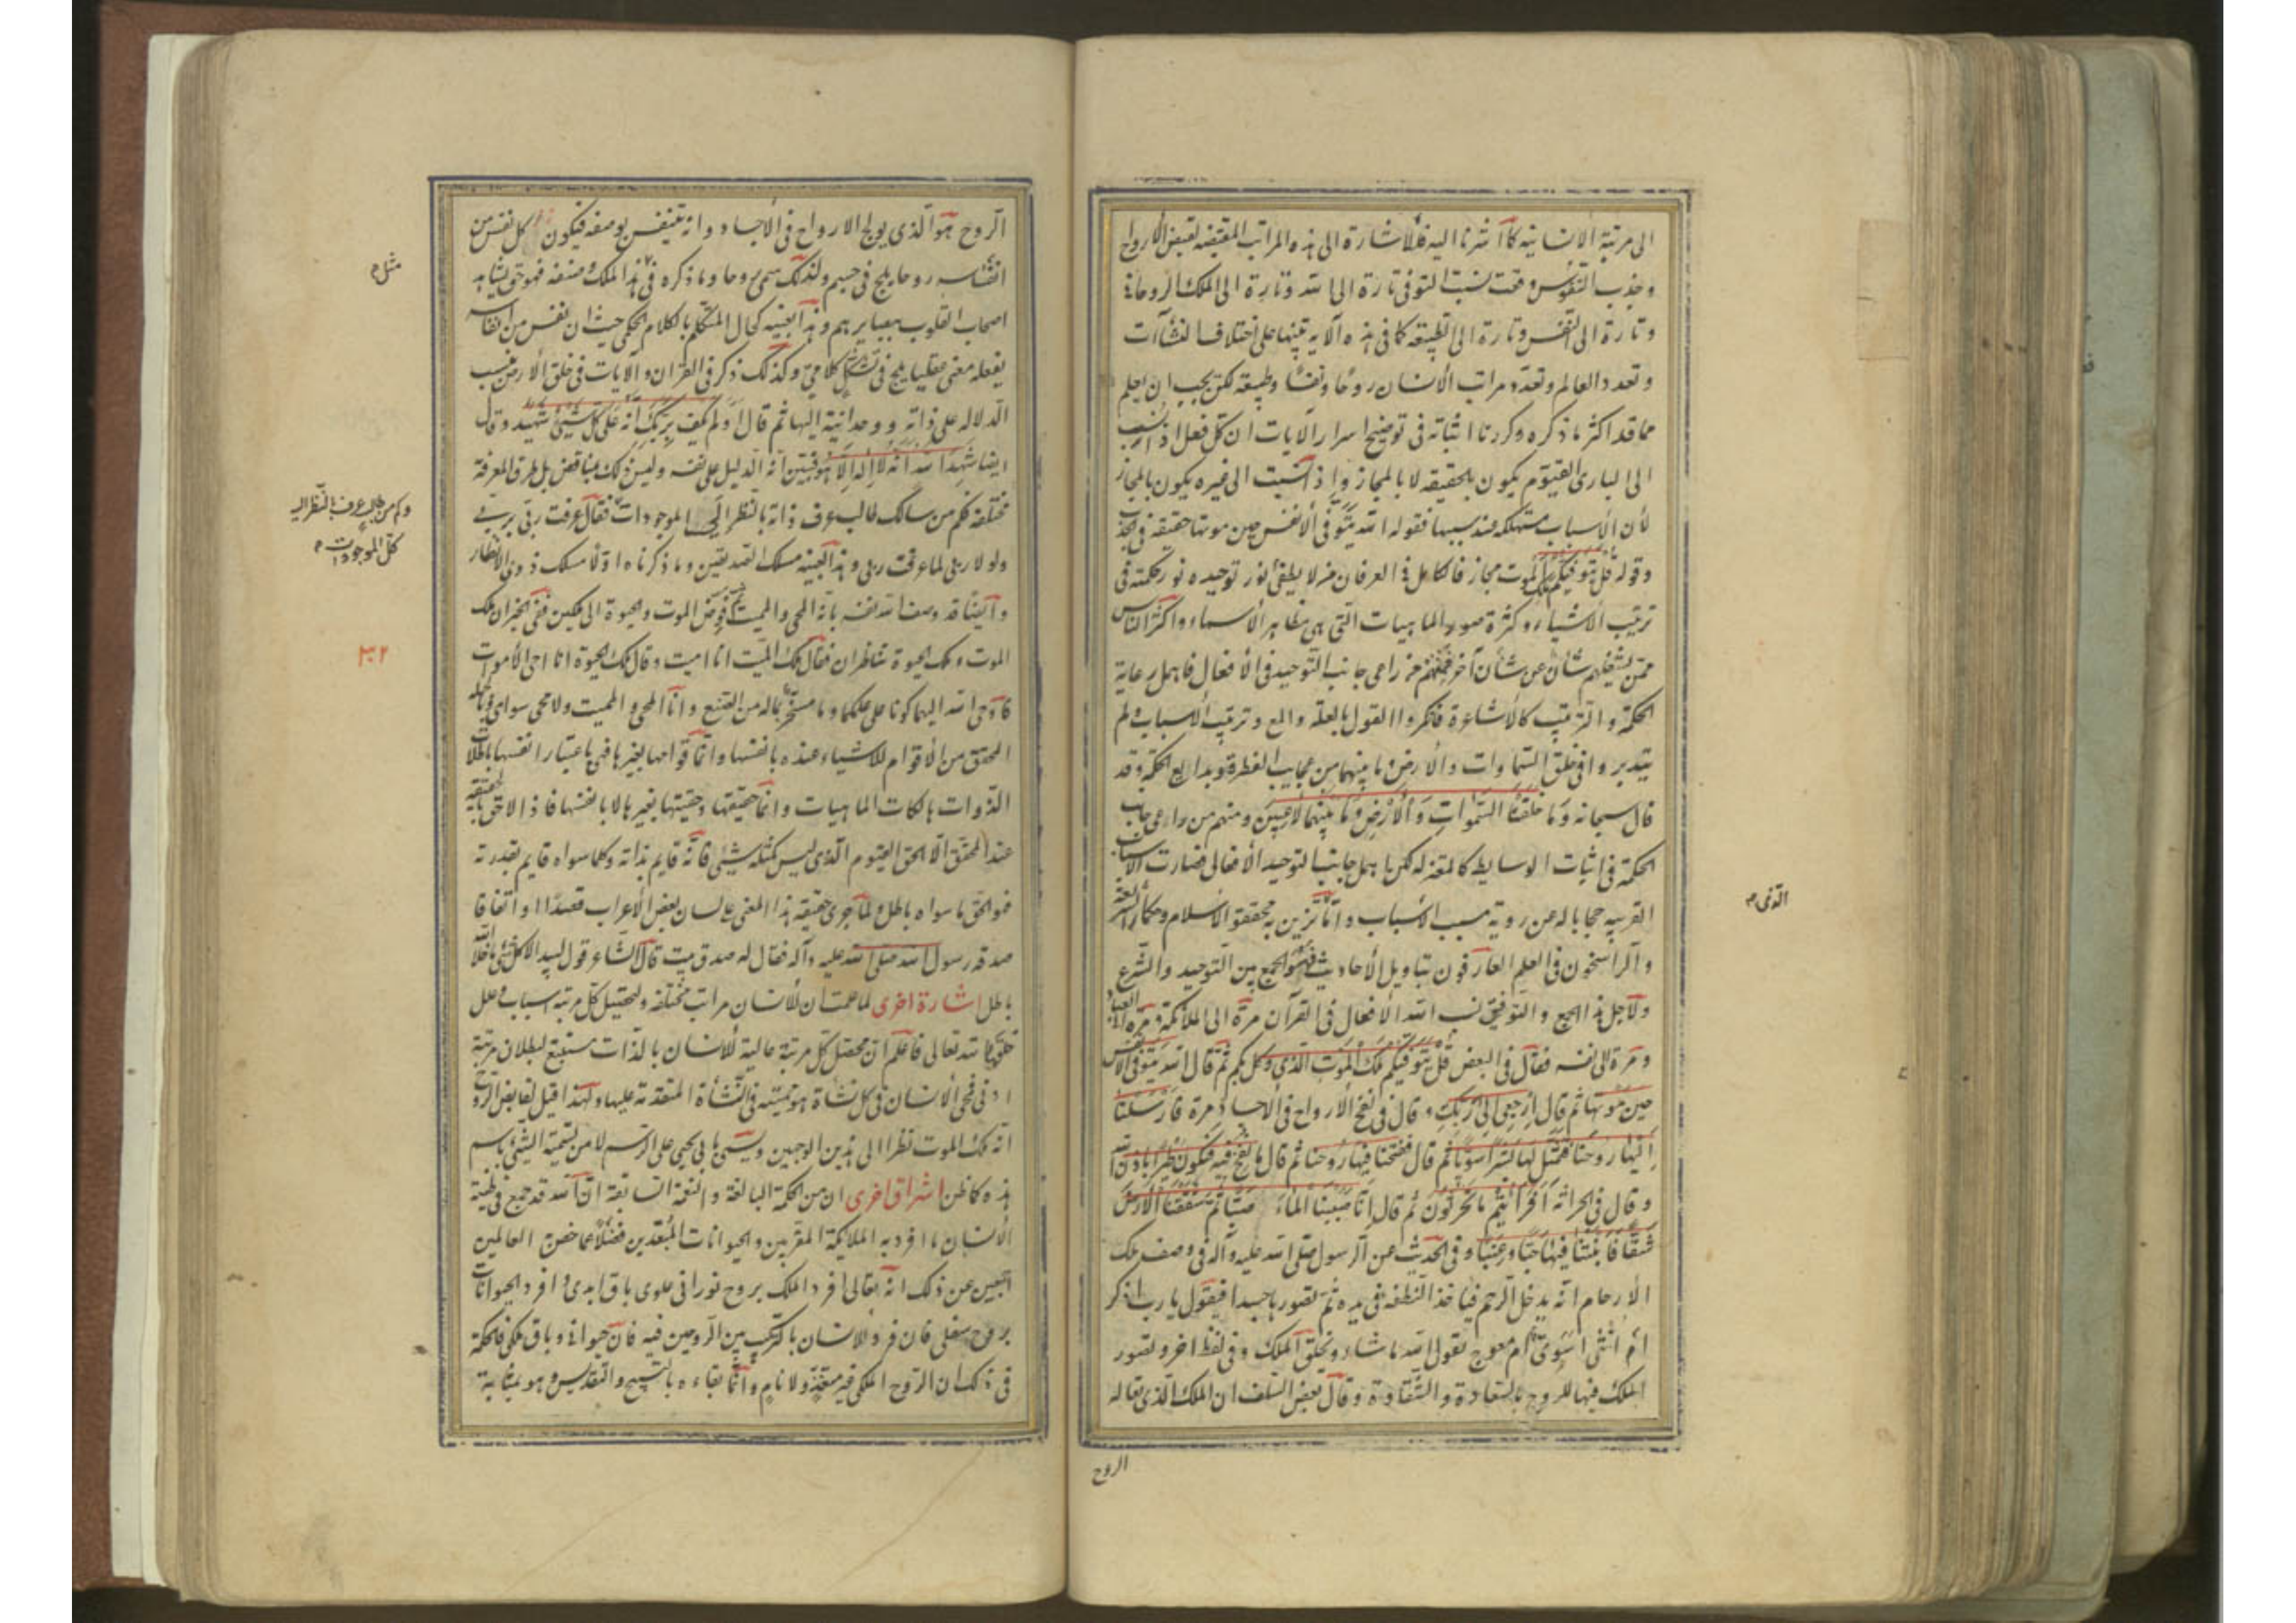 الى مرتبة الانسانية كما اشرنا اليه فللاشارة الى هذه المراتب المقتضيه لقبض الارواح
وجذب النفوس وقعت نسبة التوفى تارة الى الله وتارة الى الملك الروحانى
وتارة الى النفس وتارة الى الطبيعة كما فى هذه الآية تنبيها على اختلاف النشآت
وتعدد العالم وتعدد مراتب الانسان روحا ونفسا وطبيعة لكن يجب ان يعلم
مما قد اكثر ما ذكره وكررنا اثباته فى توضيح اسرار الآيات ان كل فعل اذا نسب
الى البارى القيوم يكون بالحقيقة لا بالمجاز واذا نسبت الى غيره يكون بالمجاز
لأن الأسباب مستهلكة عند سببها فقوله الله يتوفى الأنفس حين موتها حقيقة فى الجذب
وقوله قل يتوفيكم ملك الموت مجاز فالكامل فى العرفان من لا يطفئ نور توحيده نور حكمته فى
ترتيب الاشياء وكثرة صور الماهيات التى هى مظاهر الأسماء واكثر الناس
ممن يشغلهم شأن عن شأن آخر فمنهم من راعى جانب التوحيد فى الأفعال فاهمل رعاية
الحكمة والترتيب كالأشاعرة فانكروا القول بالعلة والمع وترتيب الاسباب ولم
يتدبروا فى خلق السماوات والأرض وما بينهما من عجايب الفطرة وبدايع الحكمة وقد
قال سبحانه وما خلقنا السموات والأرض وما بينهما لاعبين ومنهم من راعى جانب
الحكمة فى اثبات الوسايط كالمعتزله لكن اهمل جانب التوحيد الأفعالى فصارت الاسباب
القريبه حجابا له عن روية مسبب الأسباب وانما تزين به محققو الاسلام وحكماء الشريعة
والراسخون فى العلم العارفون بتاويل الأحاديث فهو الجمع بين التوحيد والشرع
ولاجل هذا الجمع والتوفيق نسب الله الأفعال فى القرآن مرة الى الملائكة ومرة الى العباد
ومرة الى نفسه فقال فى البعض قل يتوفيكم ملك الموت الذى وكل بكم ثم قال الله يتوفى الأنفس
حين موتها ثم قال ارجعى الى ربك وقال فى نفخ الأرواح فى الاجساد مرة فارسلنا
اليها روحنا فتمثل لها بشرا سويا ثم قال فنفخنا فيها من روحنا ثم قال فانفخ فيه فتكون طيرا باذن الله
وقال فى الحراثة افرأيتم ما تحرثون ثم قال انا صببنا الماء صبا ثم شققنا الأرض
شقا فانبتنا فيها حبا وعنبا وفى الحديث عن الرسول صلى الله عليه وآله فى وصف ملك
الأرحام انه يدخل الرحم فياخذ النطفة فى يده ثم تصورها جسدا فيقول يا رب اذكر
ام انثى اسوى ام معوج يقول الله ما شاء ويخلق الملك وفى لفظ آخر ويصور
الملك فيها الروح بالسعادة والشقاوة وقال بعض السلف ان الملك الذى يقال له
الروح
الذى
الروح هو الذى يولج الارواح فى الأجساد وانه يتنفس بوصفه فيكون كل نفس من
انفاسه روحا يلج فى جسم ولذلك سمى روحا وما ذكره فى هذا الملك وصفته فهو حق يشاهد
اصحاب القلوب ببصايرهم وهذا بعينه كحال المتكلم بالكلام الحكمى حيث ان نفس من انفاسه
يفعله معنى عقليا يلج فى تشكل كلامى وكذلك ذكر فى القرآن والآيات فى خلق الأرض نسب
الدلاله على ذاته ووحدانيته اليها ثم قال اولم يكف بربك انه على كل شيئ شهيد وقال
ايضا شهد الله انه لا اله الا هو فبين انه الدليل على نفسه وليس ذلك بمناقض بل طرق المعرفة
مختلفة فكم من سالك طالب عرف ذاته بالنظر الى الموجودات فقال عرفت ربى بربى
ولولا ربى لما عرفت ربى وهذا بعينه مسلك الصديقين وما ذكرناه اولا مسلك ذوى الأنظار
وايضا قد وصف الله نفسه بانه المحى والمميت ثم فوض الموت والحيوة الى ملكين ففى الخبر ان ملك
الموت وملك الحيوة تناظرا فقال ملك الميت انا اميت وقال ملك الحيوة انا احى الأموات
فاوحى الله اليهما كونا على عملكما وما سخرتما له من الصنع وانا المحى والمميت ولا محى سواى
المحقق من الأقوام للأشياء عنده بانفسها وانما قوامها بغيرها فهى باعتبار انفسها باطلات
الذوات هالكات الماهيات وانما حقيقتها وحقيتها بغيرها لا بانفسها فاذا لا حق بالحقيقة
عند المحقق الا الحق القيوم الذى ليس كمثله شيئ فانه قايم بذاته وكلما سواه قايم بقدرته
فهو الحق وما سواه باطل ولما جرى حقيقة هذا المعنى على لسان بعض الأعراب قصدا او اتفاقا
صدقه رسول الله صلى الله عليه وآله فقال له صدق بيت قال الشاعر قول لبيد الا كل شئ ما خلا الله
باطل اشارة اخرى لما علمت ان للأنسان مراتب مختلفة ولتحصيل كل مرتبة اسباب وعلل
خلقها الله تعالى فاعلم ان محصل كل مرتبة عالية للأنسان بالذات مستتبع لبطلان مرتبة
ادنى فمحى الأنسان فى كل نشأة هو مميته فى النشأة المتقدمة عليها ولهذا قيل لقابض الروح
انه ملك الموت نظرا الى هذين الوجهين ويسمى بابى يحيى على الرسم لا من تسمية الشيئ باسم
ضده كما ظن اشراق اخرى ان من الحكمة البالغة والنعمة السابغة ان الله قد جمع فى طينة
الأنسان ما افرد به الملايكة المقربين والحيوانات المبعدين فضلا عما خص العالمين
اتبين عن ذلك انه تعالى افرد الملك بروح نورانى علوى باق ابدى وافرد الحيوانات
بروح سفلى فان فرد الانسان بالتركيب بين الروحين فيه فان حيوانى وباق ملكى فالحكمة
فى ذلك ان الروح الملكى غير متغذ ولا نام وانما بقاءه بالتسبيح والتقديس وهو بمثابة
مثل
وكم من طالب عرف بالنظر اليه
كل الموجودات
٣٠٢